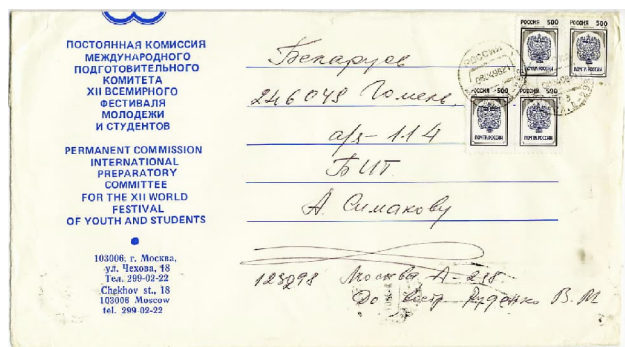 ПОСТОЯННАЯ КОМИССИЯ
МЕЖДУНАРОДНОГО
ПОДГОТОВИТЕЛЬНОГО
КОМИТЕТА
XII ВСЕМИРНОГО
ФЕСТИВАЛЯ
МОЛОДЕЖИ
И СТУДЕНТОВ
PERMANENT COMMISSION
INTERNATIONAL
PREPARATORY
COMMITTEE
FOR THE XII WORLD
FESTIVAL
OF YOUTH AND STUDENTS
103006. г. Москва,
ул. Чехова, 18
Тел. 299-02-22
Chekhov st., 18
103006 Moscow
tel. 299-02-22
РОССИЯ 500
ПОЧТА РОССИИ
РОССИЯ 500
ПОЧТА РОССИИ
РОССИЯ 500
ПОЧТА РОССИИ
РОССИЯ 500
ПОЧТА РОССИИ
РОССИЯ
Беларусь
246049 Гомель,
а/я-114
БИТ.
А. Симакову
123298 Москва А-298
До востр. Руденко В. М